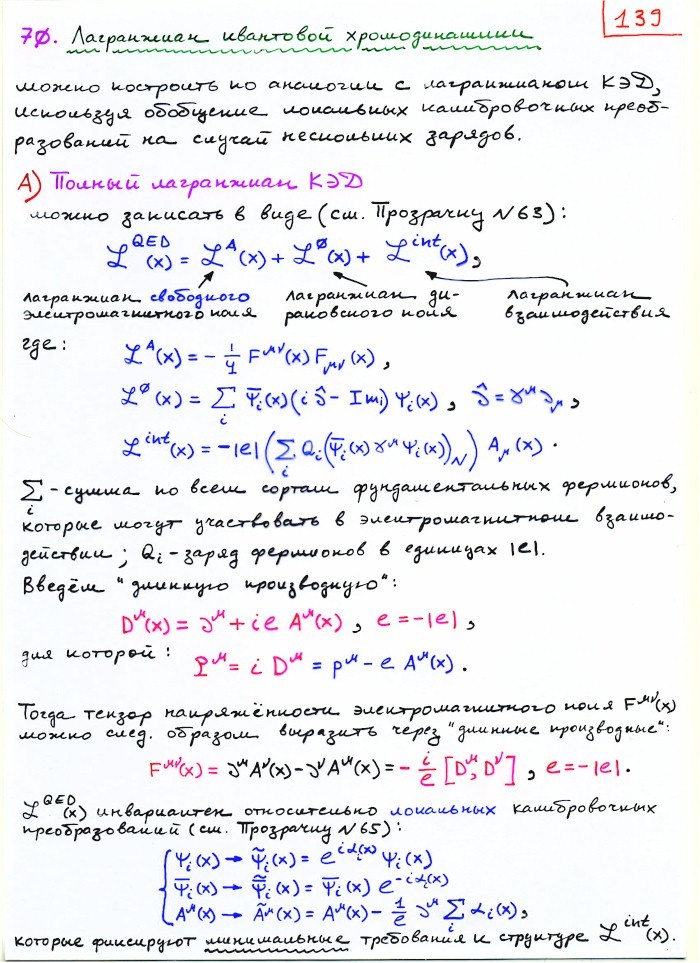 139
70. Лагранжиан квантовой хромодинамики
можно построить по аналогии с лагранжианом КЭД,
используя обобщение локальных калибровочных преоб-
разований на случай нескольких зарядов.
А) Полный лагранжиан КЭД
можно записать в виде (см. Прозрачку N63):
ℒ^QED(x) = ℒ^A(x) + ℒ^∅(x) + ℒ^int(x),
лагранжиан свободного лагранжиан ди- лагранжиан
электромагнитного поля раковского поля взаимодействия
где: ℒ^A(x) = - 1/4 F^μν(x) F_μν(x),
ℒ^∅(x) = ∑_i Ψ̄_i(x)(i ∂̂ - Im_i) Ψ_i(x), ∂̂ = γ^μ ∂_μ,
ℒ^int(x) = -|e| (∑_i Q_i(Ψ̄_i(x) γ^μ Ψ_i(x))_N) A_μ(x).
∑_i - сумма по всем сортам фундаментальных фермионов,
которые могут участвовать в электромагнитном взаимо-
действии; Q_i - заряд фермионов в единицах |e|.
Введём "длинную производную":
D^μ(x) = ∂^μ + ie A^μ(x), e = -|e|,
для которой: P^μ = i D^μ = p^μ - e A^μ(x).
Тогда тензор напряжённости электромагнитного поля F^μν(x)
можно след. образом выразить через "длинные производные":
F^μν(x) = ∂^μ A^ν(x) - ∂^ν A^μ(x) = - i/e [D^μ, D^ν], e = -|e|.
ℒ^QED(x) инвариантен относительно локальных калибровочных
преобразований (см. Прозрачку N65):
Ψ_i(x) → Ψ̃_i(x) = e^{iα_i(x)} Ψ_i(x)
Ψ̄_i(x) → Ψ̄̃_i(x) = Ψ̄_i(x) e^{-iα_i(x)}
A^μ(x) → Ã^μ(x) = A^μ(x) - 1/e ∂^μ ∑_i α_i(x),
которые фиксируют минимальные требования к структуре ℒ^int(x).